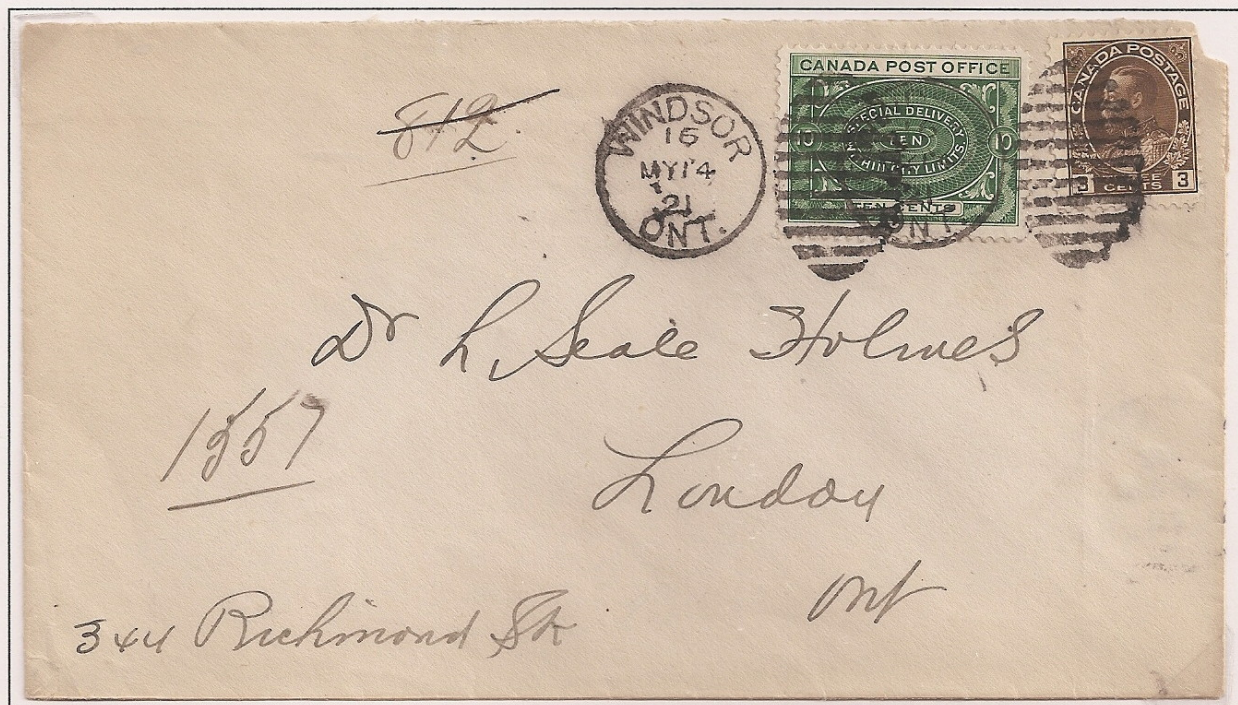 812
WINDSOR
15
MY 14
21
ONT.
CANADA POST OFFICE
SPECIAL DELIVERY
10 TEN 10
WITHIN CITY LIMITS.
TEN CENTS
ONT.
CANADA POSTAGE
3 CENTS 3
Dr L, Seale Holmes
1557
London
Ont
344 Richmond St